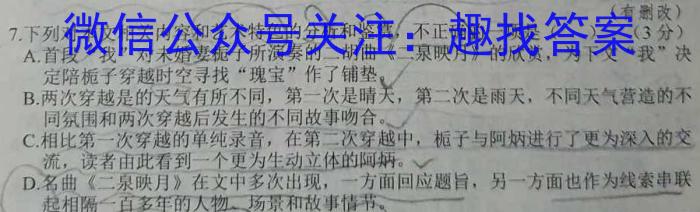 (有删改)
微信公众号关注：趣找答案
7.下列对文 不正 (3分)
A.首段“我”对未婚妻栀子所演奏的二胡曲《二泉映月》的欣赏，为下文“我”决
定陪栀子穿越时空寻找“瑰宝”作了铺垫。
B.两次穿越是的天气有所不同，第一次是晴天，第二次是雨天，不同天气营造的不
同氛围和两次穿越后发生的不同故事吻合。
C.相比第一次穿越的单纯录音，在第二次穿越中，栀子与阿炳进行了更为深入的交
流，读者由此看到一个更为生动立体的阿炳。
D.名曲《二泉映月》在文中多次出现，一方面回应题旨，另一方面也作为线索串联
起相隔一百多年的人物、场景和故事情节。